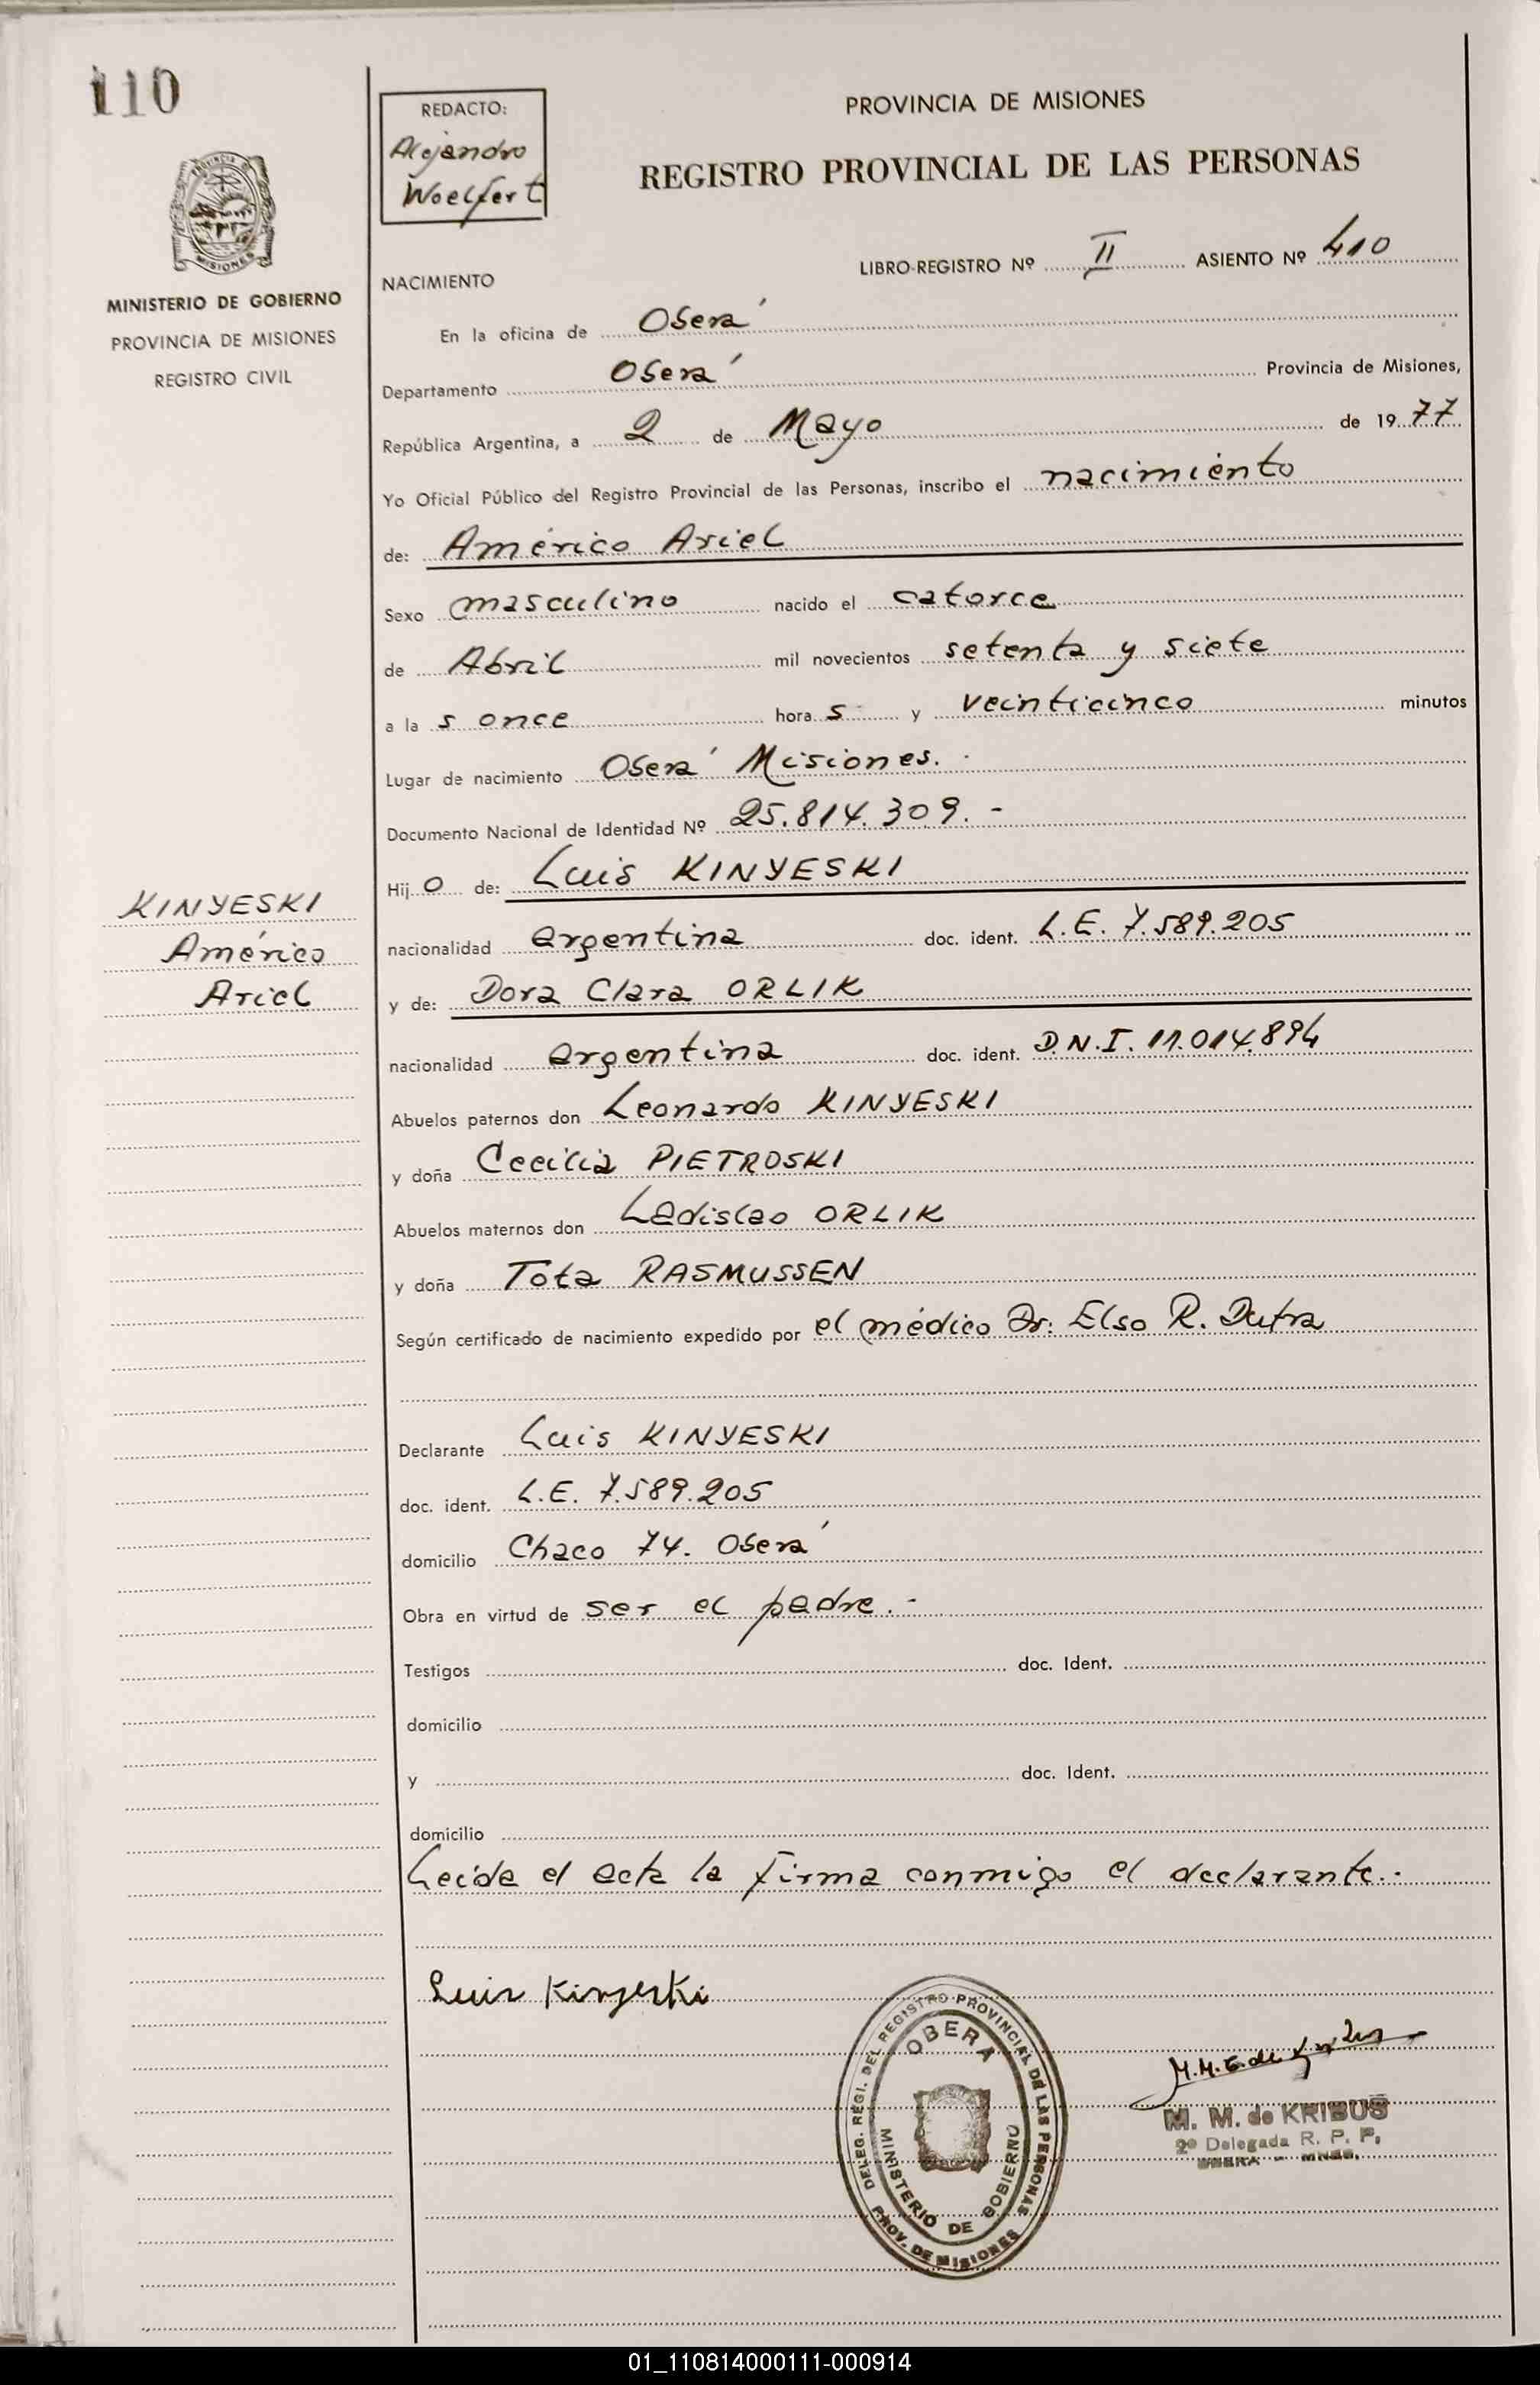 110
REDACTO:
Alejandro
Woelfert
PROVINCIA DE MISIONES
REGISTRO PROVINCIAL DE LAS PERSONAS
PROVINCIA DE
MISIONES
MINISTERIO DE GOBIERNO
PROVINCIA DE MISIONES
REGISTRO CIVIL
LIBRO-REGISTRO Nº II ASIENTO Nº 410
NACIMIENTO
En la oficina de Oberá
Departamento Oberá Provincia de Misiones,
República Argentina, a 2 de Mayo de 1977
Yo Oficial Público del Registro Provincial de las Personas, inscribo el nacimiento
de: Américo Ariel
Sexo masculino nacido el catorce
de Abril mil novecientos setenta y siete
a la s once hora s y veinticinco minutos
Lugar de nacimiento Oberá Misiones.-
Documento Nacional de Identidad Nº 25.814.309.-
Hij o de: Luis KINYESKI
KINYESKI
Américo
Ariel
nacionalidad argentina doc. ident. L.E. 7.589.205
y de: Dora Clara ORLIK
nacionalidad argentina doc. ident. D.N.I. 11.014.894
Abuelos paternos don Leonardo KINYESKI
y doña Cecilia PIETROSKI
Abuelos maternos don Ladislao ORLIK
y doña Tota RASMUSSEN
Según certificado de nacimiento expedido por el médico Dr: Elso R. Dutra
Declarante Luis KINYESKI
doc. ident. L.E. 7.589.205
domicilio Chaco 74. Oberá
Obra en virtud de ser el padre.-
Testigos doc. Ident.
domicilio
y doc. Ident.
domicilio
Leída el acta la firma conmigo el declarante.-
Luis Kinyeski
DELEG. REGI. DEL REGISTRO PROVINCIAL DE LAS PERSONAS
PROV. DE MISIONES
OBERA
MINISTERIO DE GOBIERNO
M. M. de KRIBUS
2º Delegada R. P. P.
OBERA - MNES.
01_110814000111-000914